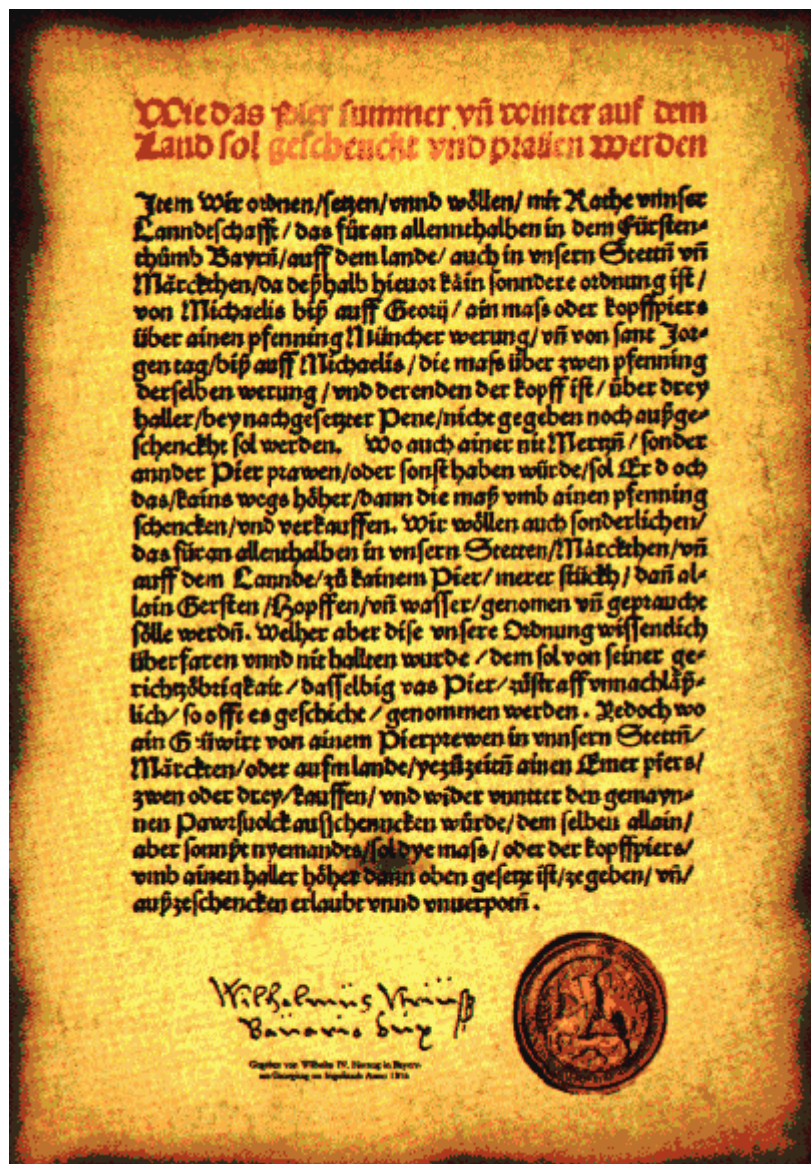 Wie das Pier summer vñ winter auf dem
Land sol geschenckt vnd prauen werden
Jtem Wir ordnen/setzen/vnnd wöllen/mit Rathe vnnser
Lanndtschafft/das für an allennthalben in dem Fürsten-
thůmb Bayrñ/auff dem lande/auch in vnsern Stettñ vñ
Märckthen/da deßhalb hieuor kain sonndere ordnung ist/
von Michaelis biß auff Georij/ain mass oder kopffpiers
über ainen pfenning Müncher werung/vñ von sant Jor-
gen tag/biß auff Michaelis/die mass über zwen pfenning
derselben werung/vnd derenden der kopff ist/über drey
haller/bey nachgesetzter Pene/nicht gegeben noch außge-
schenckht sol werden. Wo auch ainer nit Mertzñ/sonder
annder Pier prawen/oder sonst haben würde/sol Er d och
das/kains wegs höher/dann die maß vmb ainen pfenning
schencken/vnd verkauffen. Wir wöllen auch sonderlichen/
das für an allenthalben in vnsern Stetten/Märckthen/vñ
auff dem Lannde/zů kainem Pier/merer stückh/dañ al-
lain Gersten/Hopffen/vñ wasser/genomen vñ gepraucht
sölle werdñ. Welher aber dise vnsere Ordnung wissentlich
überfaren vnnd nit hallten wurde/dem sol von seiner ge-
richtzöbrigkait/dasselbig vas Pier/zůstraff vnnachläß-
lich/so offt es geschicht/genommen werden. Yedoch wo
ain Grüwirt von ainem Pierprewen in vnnsern Stettñ/
Märckten/oder aufm lande/yezůzeitñ ainen Emer piers/
zwen oder drey/kauffen/vnd wider vnntter den gemayn-
nen Pawrsuolck ausschenncken würde/dem selben allain/
aber sonnßt nyemandts/sol dye mass/oder der kopffpiers/
vmb ainen haller höher dann oben gesetzt ist/ze geben/vñ/
außzeschencken erlaubt vnnd vnuerpotñ.
Wilhelmus
Gegeben von Wilhelm IV. Herzog in Bayern
am Georgitag zu Ingolstadt Anno 1516